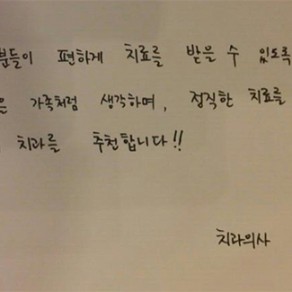 분들이 편하게 치료를 받을 수 있도록
은 가족처럼 생각하며, 정직한 치료를
치과를 추천합니다!!
치과의사